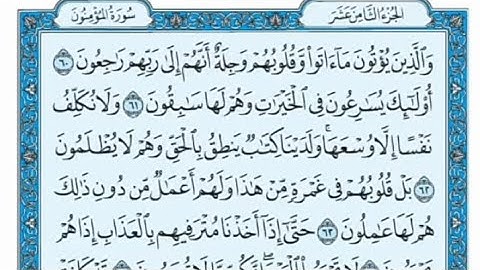 الجزء الثامن عشر
سورة المؤمنون
وَالَّذِينَ يُؤْتُونَ مَا ءَاتَوا۟ وَّقُلُوبُهُمْ وَجِلَةٌ أَنَّهُمْ إِلَىٰ رَبِّهِمْ رَٰجِعُونَ ٦٠
أُو۟لَٰٓئِكَ يُسَٰرِعُونَ فِى الْخَيْرَٰتِ وَهُمْ لَهَا سَٰبِقُونَ ٦١ وَلَا نُكَلِّفُ
نَفْسًا إِلَّا وُسْعَهَا ۖ وَلَدَيْنَا كِتَٰبٌ يَنطِقُ بِالْحَقِّ وَهُمْ لَا يُظْلَمُونَ
٦٢ بَلْ قُلُوبُهُمْ فِى غَمْرَةٍ مِّنْ هَٰذَا وَلَهُمْ أَعْمَٰلٌ مِّن دُونِ ذَٰلِكَ
هُمْ لَهَا عَٰمِلُونَ ٦٣ حَتَّىٰٓ إِذَآ أَخَذْنَا مُتْرَفِيهِم بِالْعَذَابِ إِذَا هُمْ